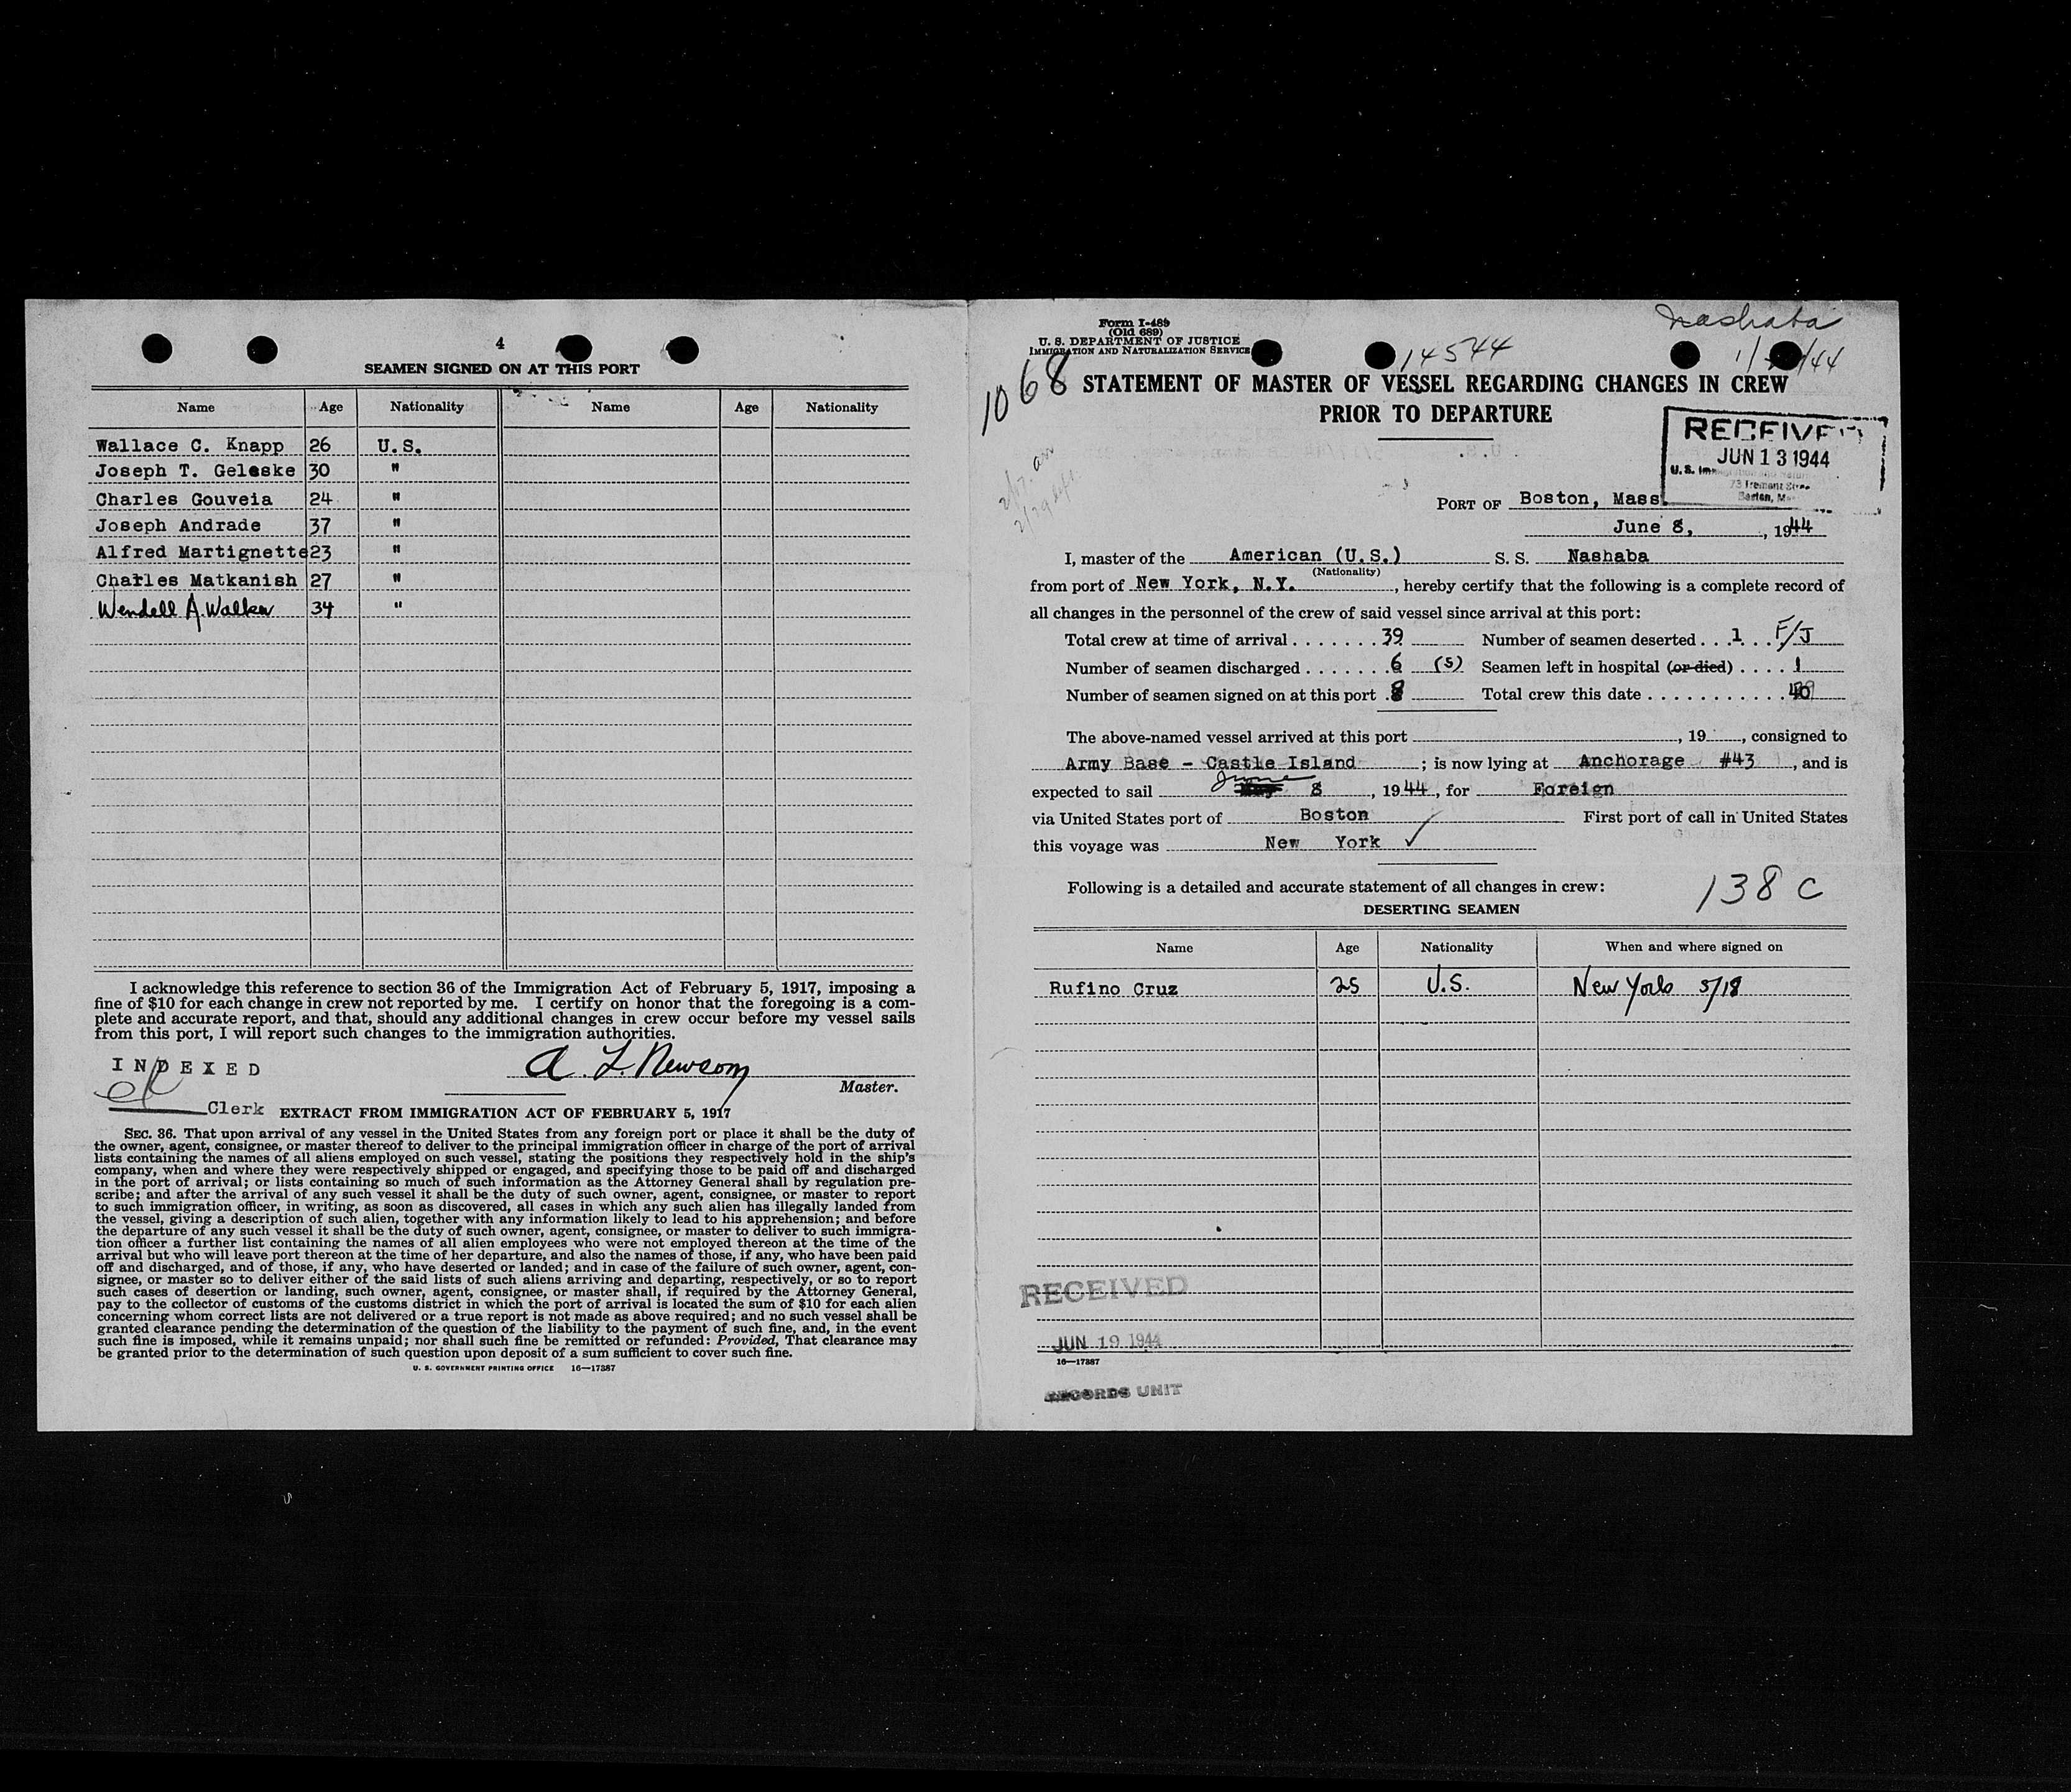 4
SEAMEN SIGNED ON AT THIS PORT
Name Age Nationality Name Age Nationality
Wallace C. Knapp 26 U.S.
Joseph T. Geleske 30 "
Charles Gouveia 24 "
Joseph Andrade 37 "
Alfred Martignette 23 "
Charles Matkanish 27 "
Wendell A. Walker 34 "
I acknowledge this reference to section 36 of the Immigration Act of February 5, 1917, imposing a
fine of $10 for each change in crew not reported by me. I certify on honor that the foregoing is a com-
plete and accurate report, and that, should any additional changes in crew occur before my vessel sails
from this port, I will report such changes to the immigration authorities.
INDEXED
A. L. Newsom
Master.
Clerk
EXTRACT FROM IMMIGRATION ACT OF FEBRUARY 5, 1917
SEC. 36. That upon arrival of any vessel in the United States from any foreign port or place it shall be the duty of
the owner, agent, consignee, or master thereof to deliver to the principal immigration officer in charge of the port of arrival
lists containing the names of all aliens employed on such vessel, stating the positions they respectively hold in the ship's
company, when and where they were respectively shipped or engaged, and specifying those to be paid off and discharged
in the port of arrival; or lists containing so much of such information as the Attorney General shall by regulation pre-
scribe; and after the arrival of any such vessel it shall be the duty of such owner, agent, consignee, or master to report
to such immigration officer, in writing, as soon as discovered, all cases in which any such alien has illegally landed from
the vessel, giving a description of such alien, together with any information likely to lead to his apprehension; and before
the departure of any such vessel it shall be the duty of such owner, agent, consignee, or master to deliver to such immigra-
tion officer a further list containing the names of all alien employees who were not employed thereon at the time of the
arrival but who will leave port thereon at the time of her departure, and also the names of those, if any, who have been paid
off and discharged, and of those, if any, who have deserted or landed; and in case of the failure of such owner, agent, con-
signee, or master so to deliver either of the said lists of such aliens arriving and departing, respectively, or so to report
such cases of desertion or landing, such owner, agent, consignee, or master shall, if required by the Attorney General,
pay to the collector of customs of the customs district in which the port of arrival is located the sum of $10 for each alien
concerning whom correct lists are not delivered or a true report is not made as above required; and no such vessel shall be
granted clearance pending the determination of the question of the liability to the payment of such fine, and, in the event
such fine is imposed, while it remains unpaid; nor shall such fine be remitted or refunded: Provided, That clearance may
be granted prior to the determination of such question upon deposit of a sum sufficient to cover such fine.
U. S. GOVERNMENT PRINTING OFFICE 16—17387
Form I-489
(Old 689)
U. S. DEPARTMENT OF JUSTICE
IMMIGRATION AND NATURALIZATION SERVICE
Nashaba
14544
1068
STATEMENT OF MASTER OF VESSEL REGARDING CHANGES IN CREW
PRIOR TO DEPARTURE
RECEIVED
JUN 13 1944
PORT OF Boston, Mass.
June 8, 1944
I, master of the American (U.S.) S. S. Nashaba
(Nationality)
from port of New York, N.Y. , hereby certify that the following is a complete record of
all changes in the personnel of the crew of said vessel since arrival at this port:
Total crew at time of arrival . . . . . . . 39 Number of seamen deserted . . 1 . . F/J
Number of seamen discharged . . . . . . 6 (S) Seamen left in hospital (or died) . . . . 1
Number of seamen signed on at this port . 8 Total crew this date . . . . . . . . . . . . 40
The above-named vessel arrived at this port , 19 , consigned to
Army Base - Castle Island ; is now lying at Anchorage #43 , and is
expected to sail June 8 , 1944 , for Foreign
via United States port of Boston First port of call in United States
this voyage was New York ✓
Following is a detailed and accurate statement of all changes in crew:
138 C
DESERTING SEAMEN
Name Age Nationality When and where signed on
Rufino Cruz 25 U.S. New York 5/18
RECEIVED
JUN 19 1944
16—17387
RECORDS UNIT